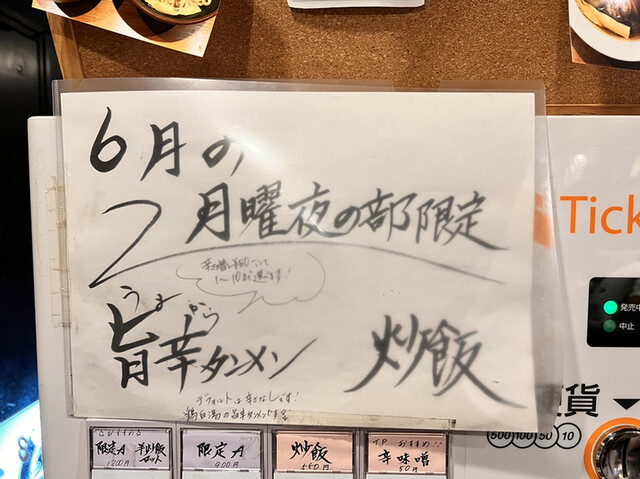 6月の
月曜夜の部限定
1〜10まで選べます!
うま から
旨辛タンメン 炒飯
デフォルトは辛さなしです!
鶏白湯の旨辛タンメンです
Tick
発売中
中止
貨
500 100 50 10
おすすめ
限定A 半炒飯セット
1200円
限定A
900円
炒飯
550円
T.P おすすめ
辛味噌
50円